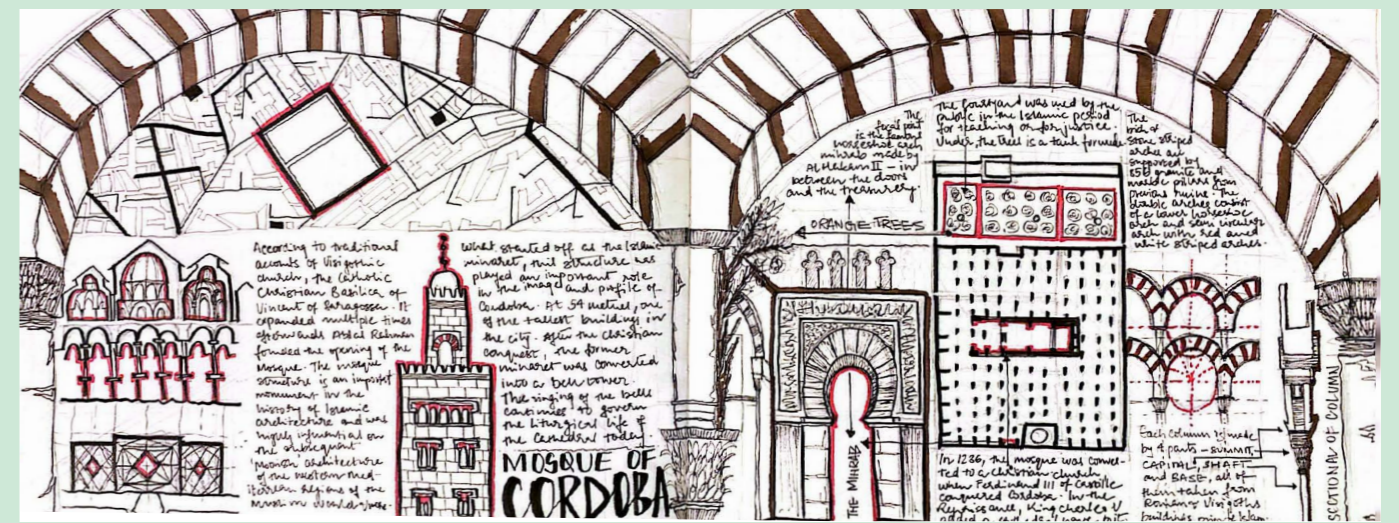 According to traditional
accounts of Visigothic
church, the Catholic
Christian Basilica of
Vincent of Saragossa. It
expanded multiple times
afterwards Abdal Rahman
formed the opening of the
Mosque. The mosque
structure is an important
monument in the
history of Islamic
architecture and was
highly influential on
the subsequent
"Moorish" architecture
of the western Med-
iterrean regions of the
What started off as the Islamic
minaret, this structure has
played an important role
in the image and profile of
Cordoba. At 54 metres, one
of the tallest buildings in
the city. After the Christian
conquest, the former
minaret was converted
into a bell tower.
The ringing of the bells
continues to govern
the liturgical life of
the Cathedral today.
MOSQUE OF
CORDOBA
The
focal point
is the famous
horseshoe arch
mihrab made by
Al Hakam II – in
between the doors
and the treasury.
The courtyard was used by the
public in the Islamic period
for teaching or for justice.
Under the trees is a tank formed
The
brick and
stone striped
arches are
supported by
856 granite and
marble pillars from
previous ruins. The
double arches consist
of a lower horseshoe
arch and semi circular
arch with red and
white striped arches.
ORANGE TREES
THE MIHRAB
In 1236, the mosque was conver-
ted to a Christian church
when Ferdinand III of Castile
conquered Cordoba. In the
Renaissance, King Charles V
added a
Each column is made
by 4 parts – SUMMIT,
CAPITAL, SHAFT
and BASE, all of
them taken from
Roman or Visigoths
buildings
SECTIONAL OF COLUMN